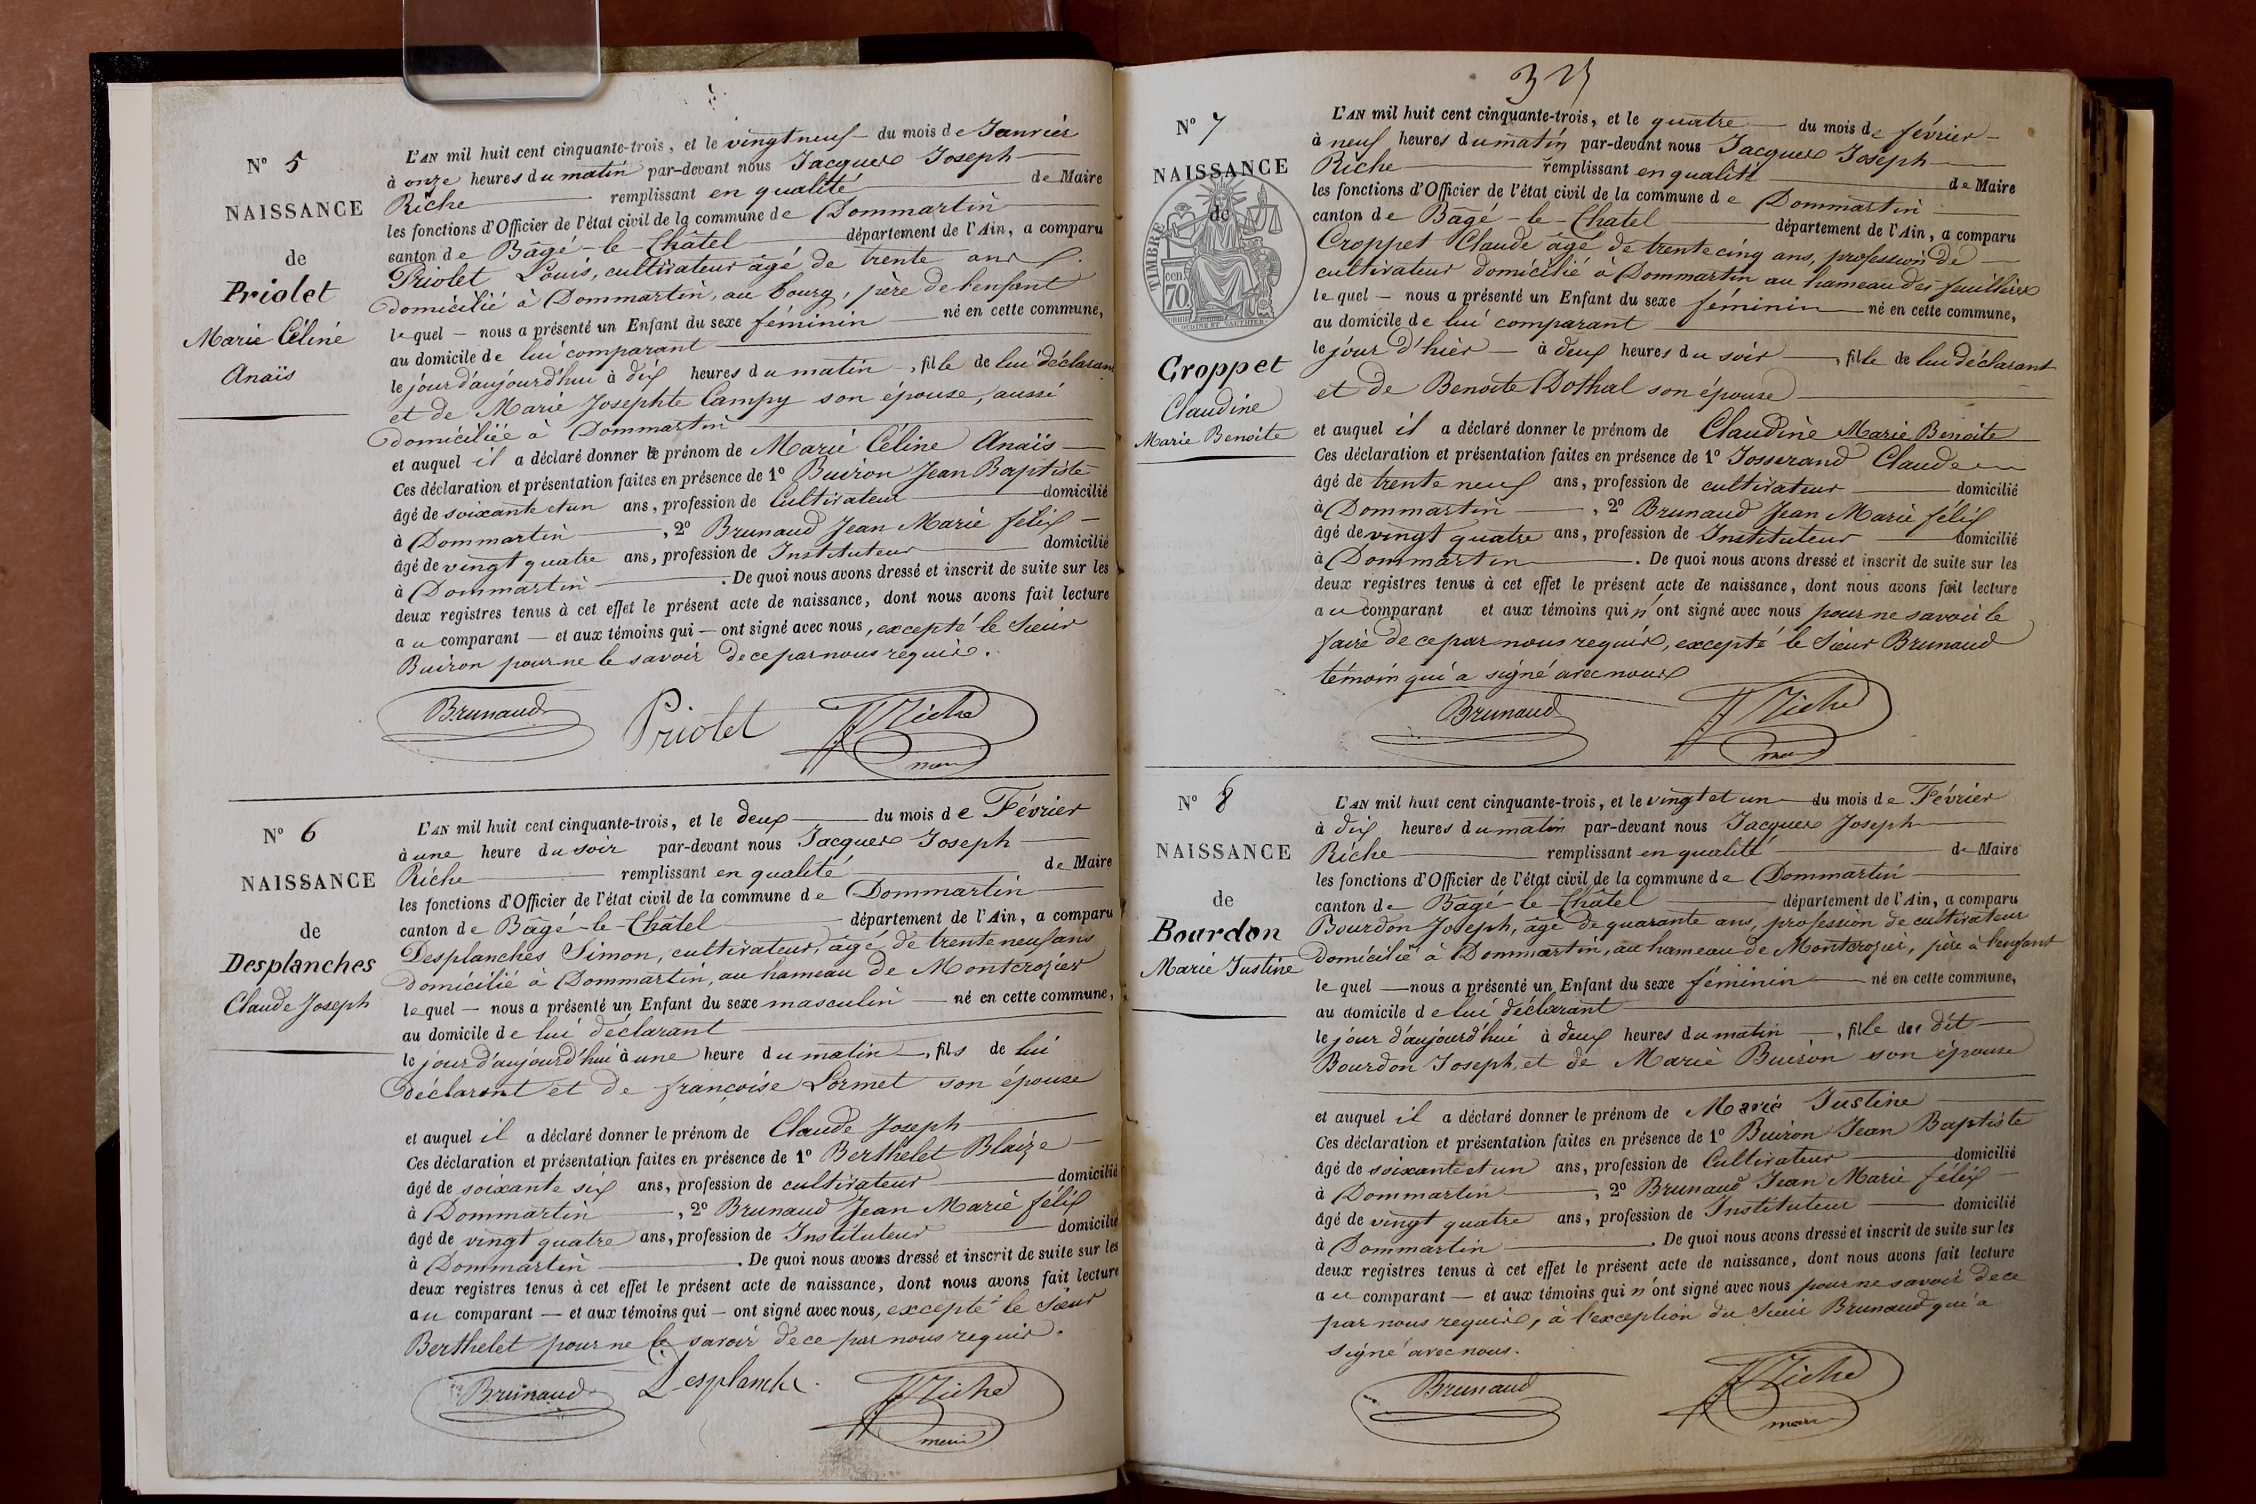 N° 5
NAISSANCE
de
Priolet
Marie Céline
Anaïs
L'AN mil huit cent cinquante-trois, et le vingt neuf du mois de Janvier
à onze heures du matin par-devant nous Jacques Joseph
Riche remplissant en qualité de Maire
les fonctions d'Officier de l'état civil de la commune de Dommartin
canton de Bâgé-le-Châtel département de l'Ain, a comparu
Priolet Louis, cultivateur âgé de trente ans
domicilié à Dommartin, au bourg, père de l'enfant
lequel — nous a présenté un Enfant du sexe féminin né en cette commune,
au domicile de lui comparant
le jour d'aujourd'hui à dix heures du matin, fille de lui déclarant
et de Marie Josephte Campy son épouse, aussi
domiciliée à Dommartin
et auquel il a déclaré donner le prénom de Marie Céline Anaïs
Ces déclaration et présentation faites en présence de 1° Buiron Jean Baptiste
âgé de soixante et un ans, profession de Cultivateur domicilié
à Dommartin, 2° Brunaud Jean Marie félix
âgé de vingt quatre ans, profession de Instituteur domicilié
à Dommartin. De quoi nous avons dressé et inscrit de suite sur les
deux registres tenus à cet effet le présent acte de naissance, dont nous avons fait lecture
au comparant — et aux témoins qui — ont signé avec nous, excepté le Sieur
Buiron pour ne le savoir de ce par nous requis.
Brunaud Priolet JJ Riche
maire
N° 6
NAISSANCE
de
Desplanches
Claude Joseph
L'AN mil huit cent cinquante-trois, et le deux du mois de Février
à une heure du soir par-devant nous Jacques Joseph
Riche remplissant en qualité de Maire
les fonctions d'Officier de l'état civil de la commune de Dommartin
canton de Bâgé-le-Châtel département de l'Ain, a comparu
Desplanches Simon, cultivateur, âgé de trente neuf ans
domicilié à Dommartin, au hameau de Montcrozier
lequel — nous a présenté un Enfant du sexe masculin né en cette commune,
au domicile de lui déclarant
le jour d'aujourd'hui à une heure du matin, fils de lui
déclarant et de françoise Lormet son épouse
et auquel il a déclaré donner le prénom de Claude Joseph
Ces déclaration et présentation faites en présence de 1° Berthelet Blaize
âgé de soixante six ans, profession de cultivateur domicilié
à Dommartin, 2° Brunaud Jean Marie félix
âgé de vingt quatre ans, profession de Instituteur domicilié
à Dommartin. De quoi nous avons dressé et inscrit de suite sur les
deux registres tenus à cet effet le présent acte de naissance, dont nous avons fait lecture
au comparant — et aux témoins qui — ont signé avec nous, excepté le Sieur
Berthelet pour ne le savoir de ce par nous requis.
Brunaud Desplanche JJ Riche
maire
N° 7
NAISSANCE
de
TIMBRE
70
Croppet
Claudine
Marie Benoite
L'AN mil huit cent cinquante-trois, et le quatre du mois de février
à neuf heures du matin par-devant nous Jacques Joseph
Riche remplissant en qualité de Maire
les fonctions d'Officier de l'état civil de la commune de Dommartin
canton de Bâgé-le-Chatel département de l'Ain, a comparu
Croppet Claude âgé de trente cinq ans, profession de
cultivateur domicilié à Dommartin au hameau des feuillées
lequel — nous a présenté un Enfant du sexe féminin né en cette commune,
au domicile de lui comparant
le jour d'hier à deux heures du soir, fille de lui déclarant
et de Benoite Dothal son épouse
et auquel il a déclaré donner le prénom de Claudine Marie Benoite
Ces déclaration et présentation faites en présence de 1° Josserand Claude
âgé de trente neuf ans, profession de cultivateur domicilié
à Dommartin, 2° Brunaud Jean Marie félix
âgé de vingt quatre ans, profession de Instituteur domicilié
à Dommartin. De quoi nous avons dressé et inscrit de suite sur les
deux registres tenus à cet effet le présent acte de naissance, dont nous avons fait lecture
au comparant et aux témoins qui n'ont signé avec nous pour ne savoir le
faire de ce par nous requis, excepté le Sieur Brunaud
témoin qui a signé avec nous
Brunaud JJ Riche
maire
N° 8
NAISSANCE
de
Bourdon
Marie Justine
L'AN mil huit cent cinquante-trois, et le vingt et un du mois de Février
à dix heures du matin par-devant nous Jacques Joseph
Riche remplissant en qualité de Maire
les fonctions d'Officier de l'état civil de la commune de Dommartin
canton de Bâgé-le-Châtel département de l'Ain, a comparu
Bourdon Joseph, âgé de quarante ans, profession de cultivateur
domicilié à Dommartin, au hameau de Montcrozier, père à l'enfant
lequel — nous a présenté un Enfant du sexe féminin né en cette commune,
au domicile de lui déclarant
le jour d'aujourd'hui à deux heures du matin, fille de dit
Bourdon Joseph, et de Marie Buiron son épouse
et auquel il a déclaré donner le prénom de Marie Justine
Ces déclaration et présentation faites en présence de 1° Buiron Jean Baptiste
âgé de soixante et un ans, profession de Cultivateur domicilié
à Dommartin, 2° Brunaud Jean Marie félix
âgé de vingt quatre ans, profession de Instituteur domicilié
à Dommartin. De quoi nous avons dressé et inscrit de suite sur les
deux registres tenus à cet effet le présent acte de naissance, dont nous avons fait lecture
au comparant — et aux témoins qui n'ont signé avec nous pour ne savoir de ce
par nous requis, à l'exception du Sieur Brunaud qui a
signé avec nous.
Brunaud JJ Riche
maire